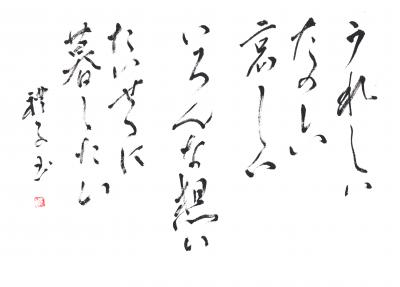 うれしい
たのしい
哀しい
いろんな想い
たいせつに
暮したい